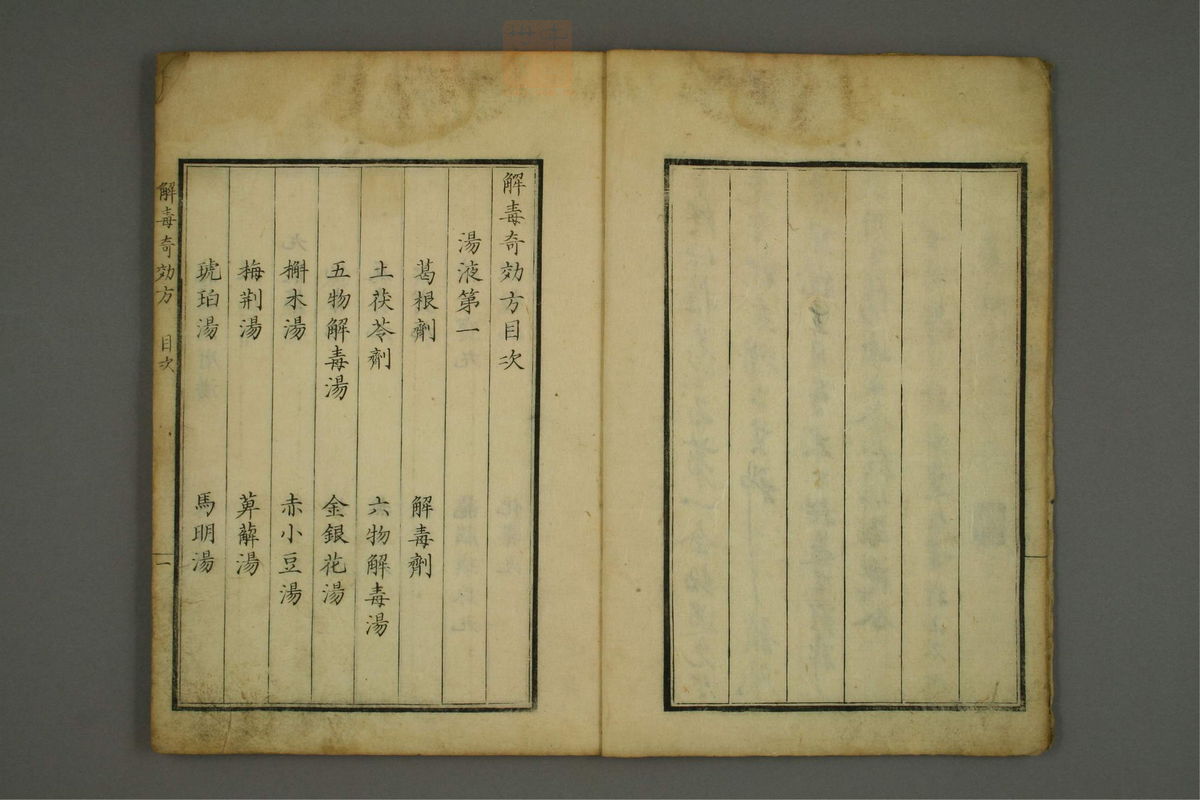 解毒奇効方目次
湯液第一
葛根劑 解毒劑
土茯苓劑 六物解毒湯
五物解毒湯 金銀花湯
檞木湯 赤小豆湯
梅荆湯 萆薢湯
琥珀湯 馬明湯
解毒奇効方 目次 一